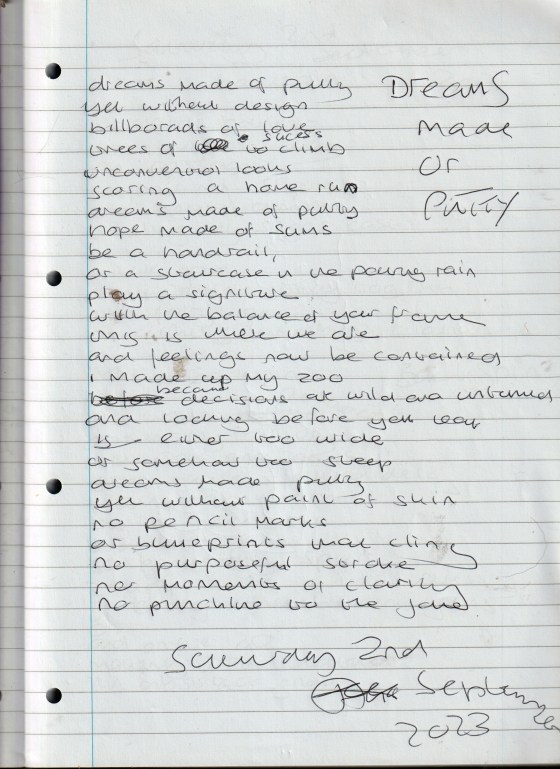 Dreams
Made
Of
Putty
dreams made of putty
yet without design
billborads of love
trees of sucess to climb
unconventional looks
scoring a home run
dreams made of putty
hope made of
be a handrail,
or a staircase in the pouring rain
play a signiture
with the balance of your frame
this is where we are
and feelings now be contained
i made up my zoo
because decisions are wild and untamed
and looking before you leap
is either too wide
or somehow too steep
dreams made putty
yet without paint of skin
no pencil marks
or blueprints that cling
no purposeful stroke
nor moments of clarity
no punchline to the joke
Saturday 2nd
September
2023